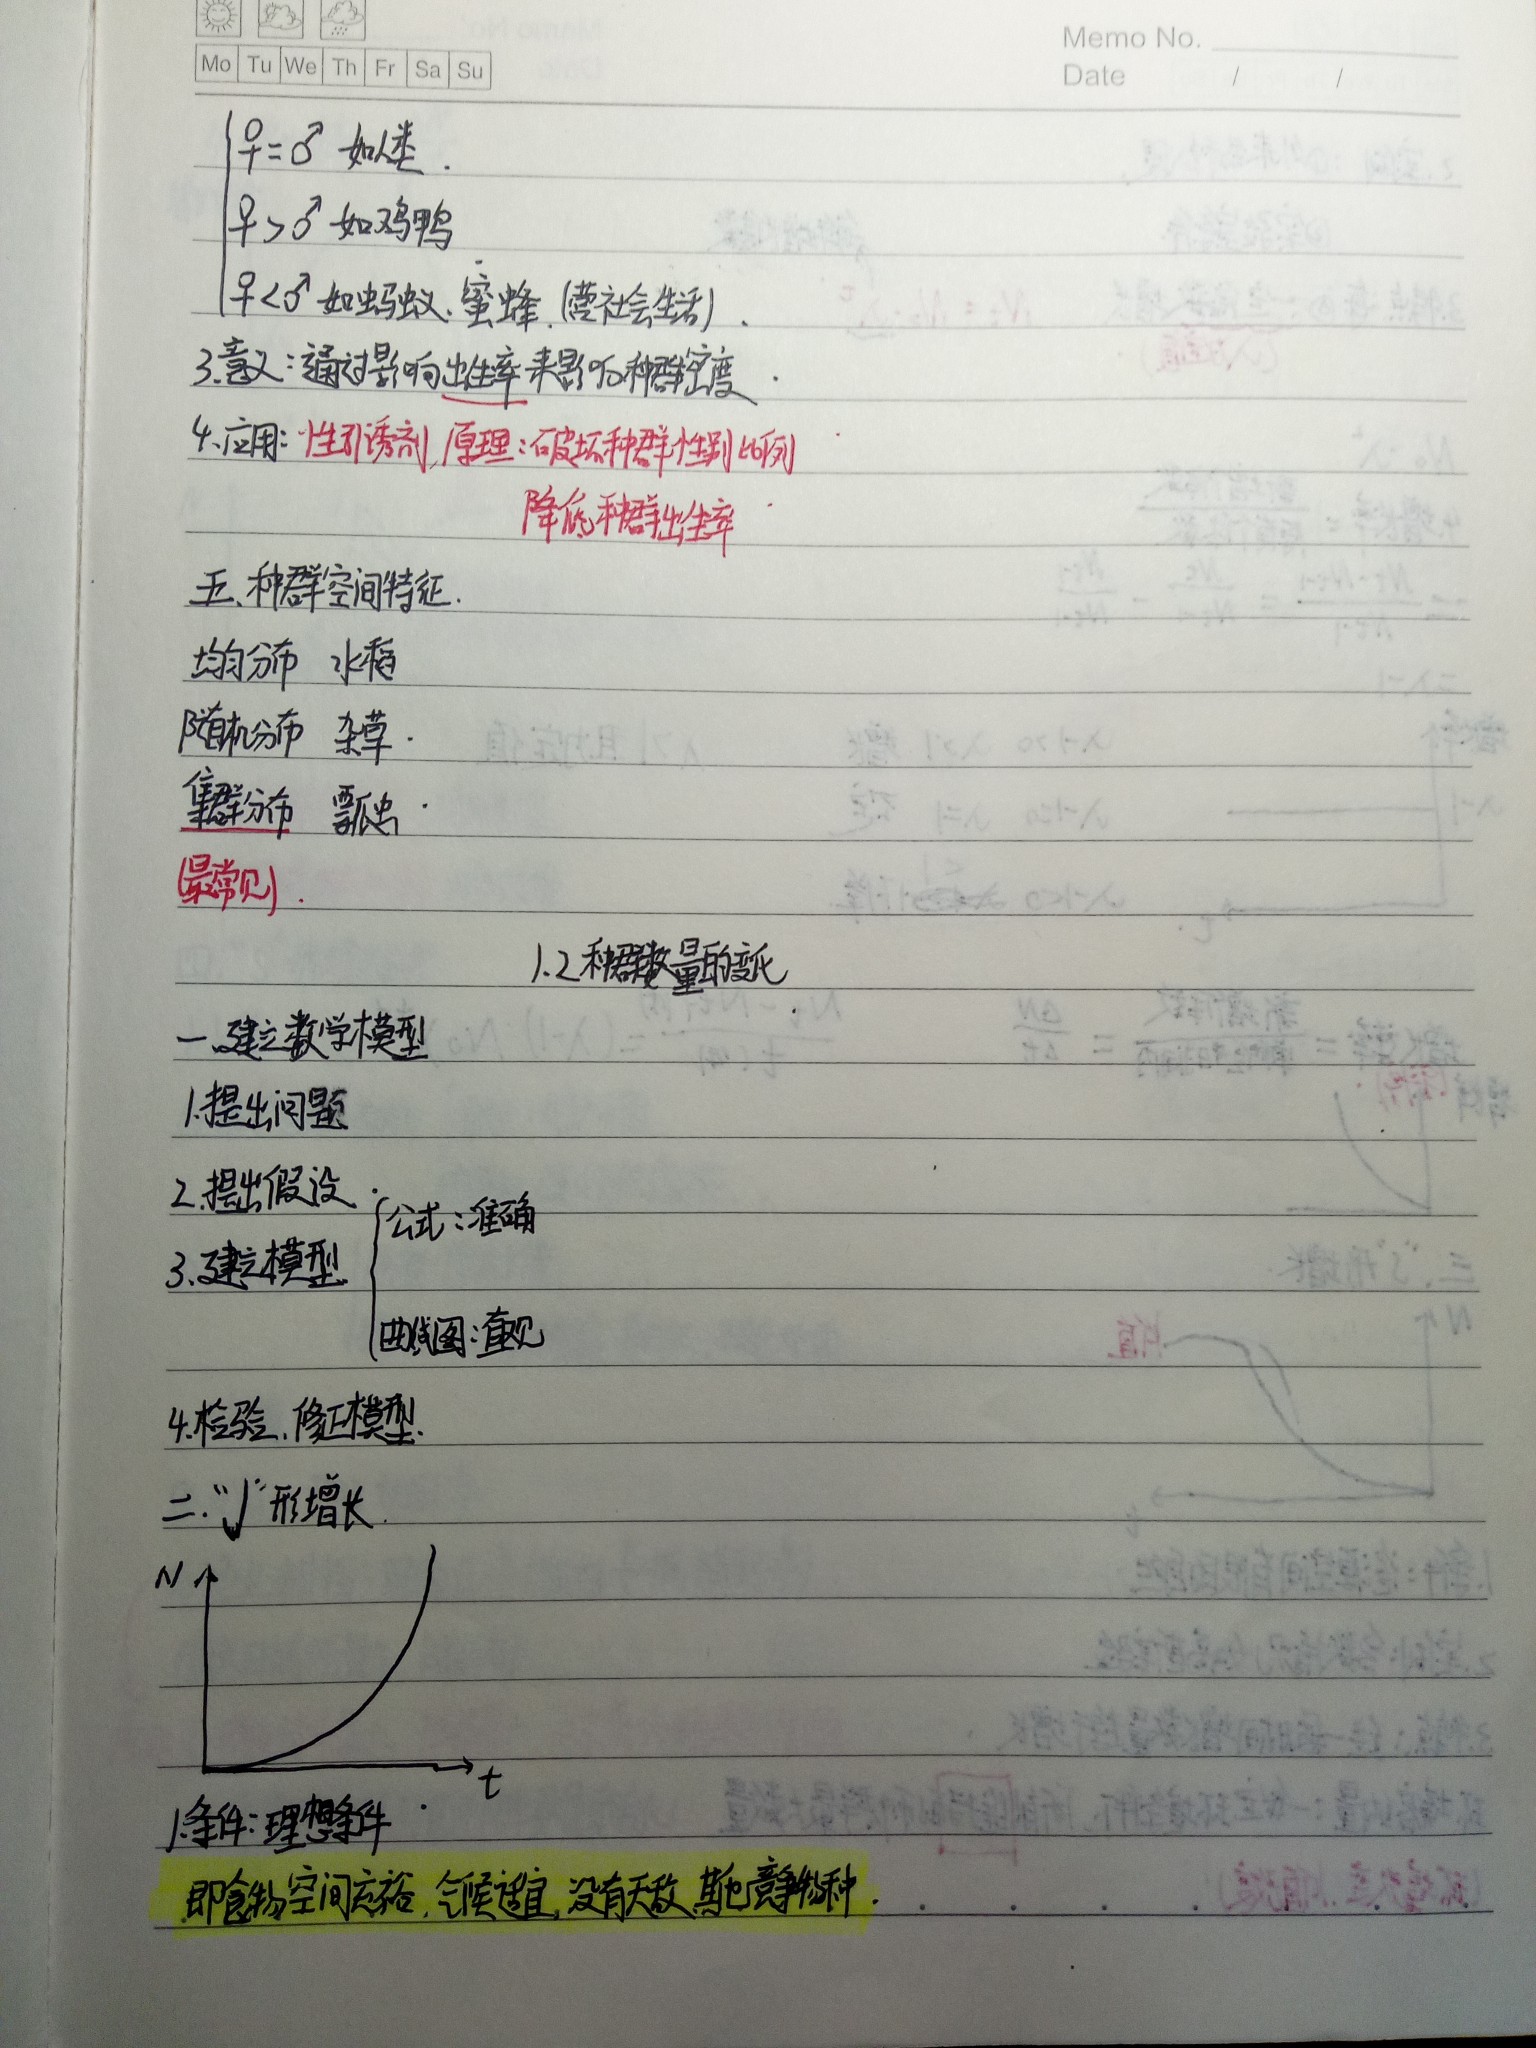 Mo Tu We Th Fr Sa Su
Memo No.
Date / /
♀=♂ 如人类.
♀>♂ 如鸡鸭
♀<♂ 如蚂蚁、蜜蜂.(营社会生活).
3.意义:通过影响出生率来影响种群密度.
4.应用:性引诱剂,原理:破坏种群性别比例
降低种群出生率
五、种群空间特征.
均匀分布 水稻
随机分布 杂草.
集群分布 瓢虫.
(最常见).
1.2种群数量的变化
一.建立数学模型
1.提出问题
2.提出假设.
3.建立模型
公式:准确
曲线图:直观
4.检验、修正模型.
二."J"形增长.
N
t
1.条件:理想条件
即食物空间充裕,气候适宜,没有天敌,其他竞争物种.